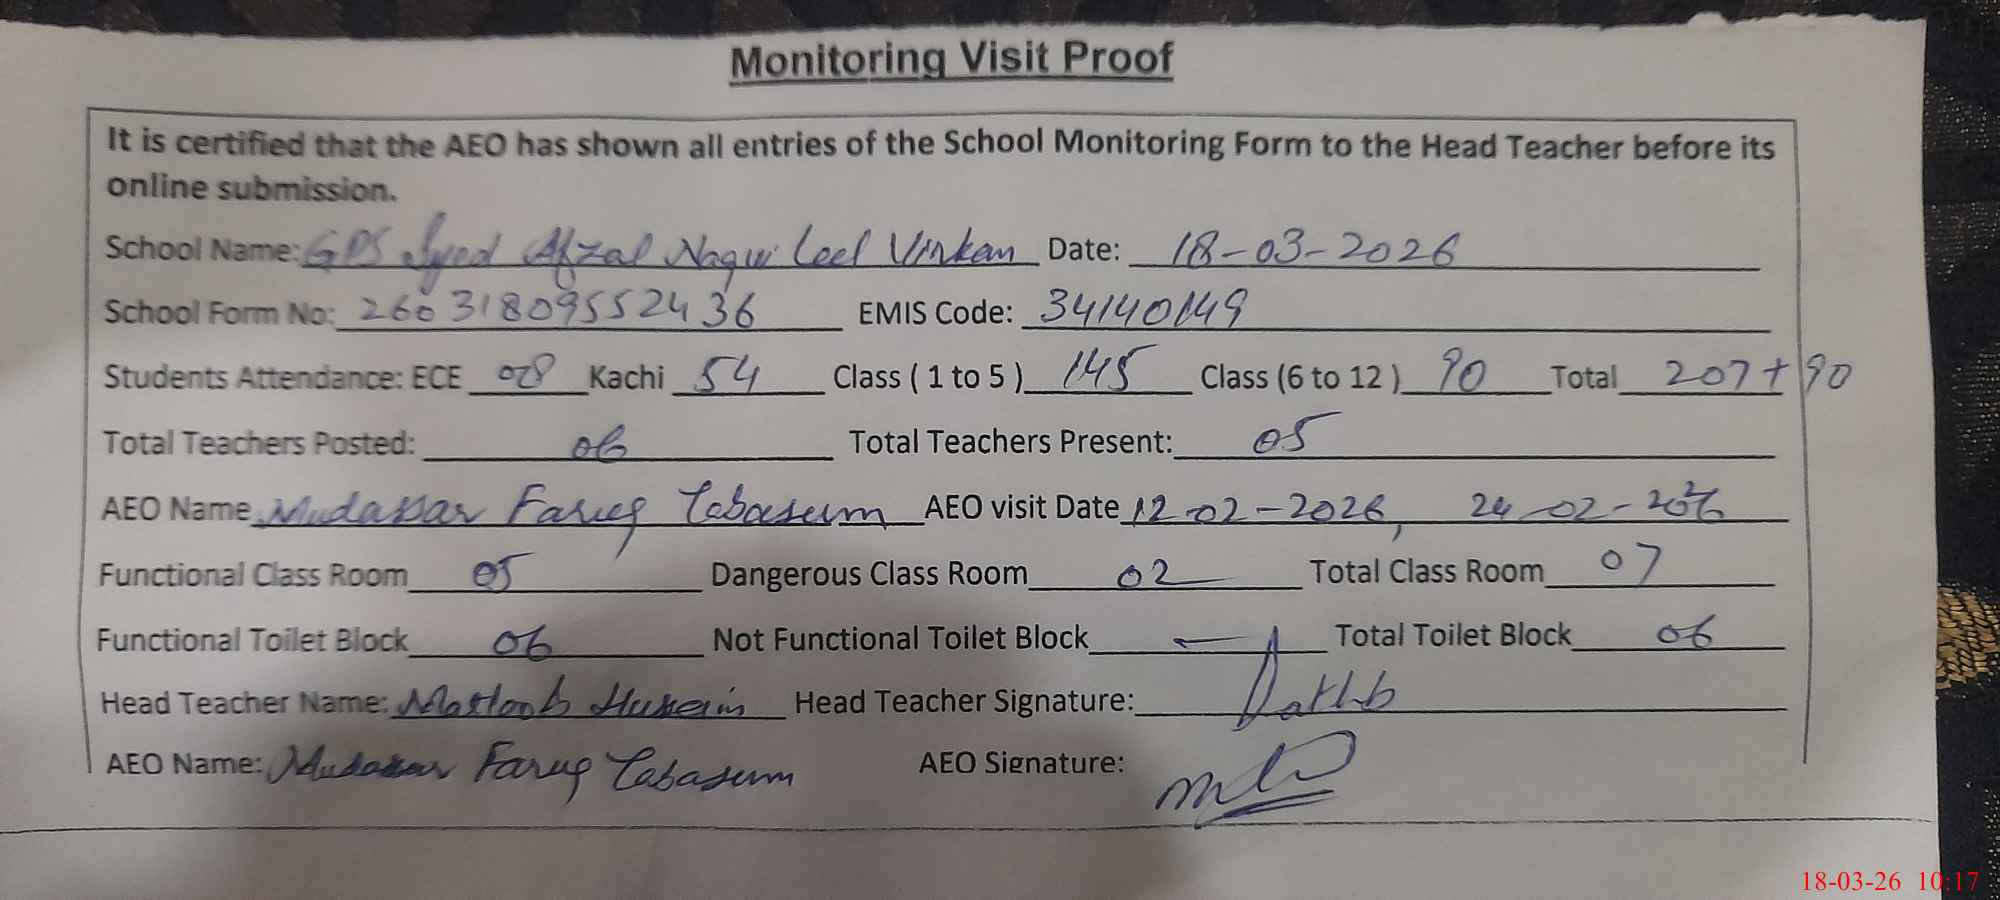 Monitoring Visit Proof
It is certified that the AEO has shown all entries of the School Monitoring Form to the Head Teacher before its
online submission.
School Name: GPS Syed Afzal Naqvi Date: 18-03-2026
School Form No: 26031809552436 EMIS Code: 34140149
Students Attendance: ECE 08 Kachi 54 Class ( 1 to 5 ) 145 Class (6 to 12 ) 90 Total 207+90
Total Teachers Posted: 06 Total Teachers Present: 05
AEO Name Mudassar Faruq Tabasum AEO visit Date 12-02-2026, 24-02-2026
Functional Class Room 05 Dangerous Class Room 02 Total Class Room 07
Functional Toilet Block 06 Not Functional Toilet Block — Total Toilet Block 06
Head Teacher Name: Matloob Hussain Head Teacher Signature:
AEO Name: Mudassar Faruq Tabasum AEO Signature:
18-03-26 10:17